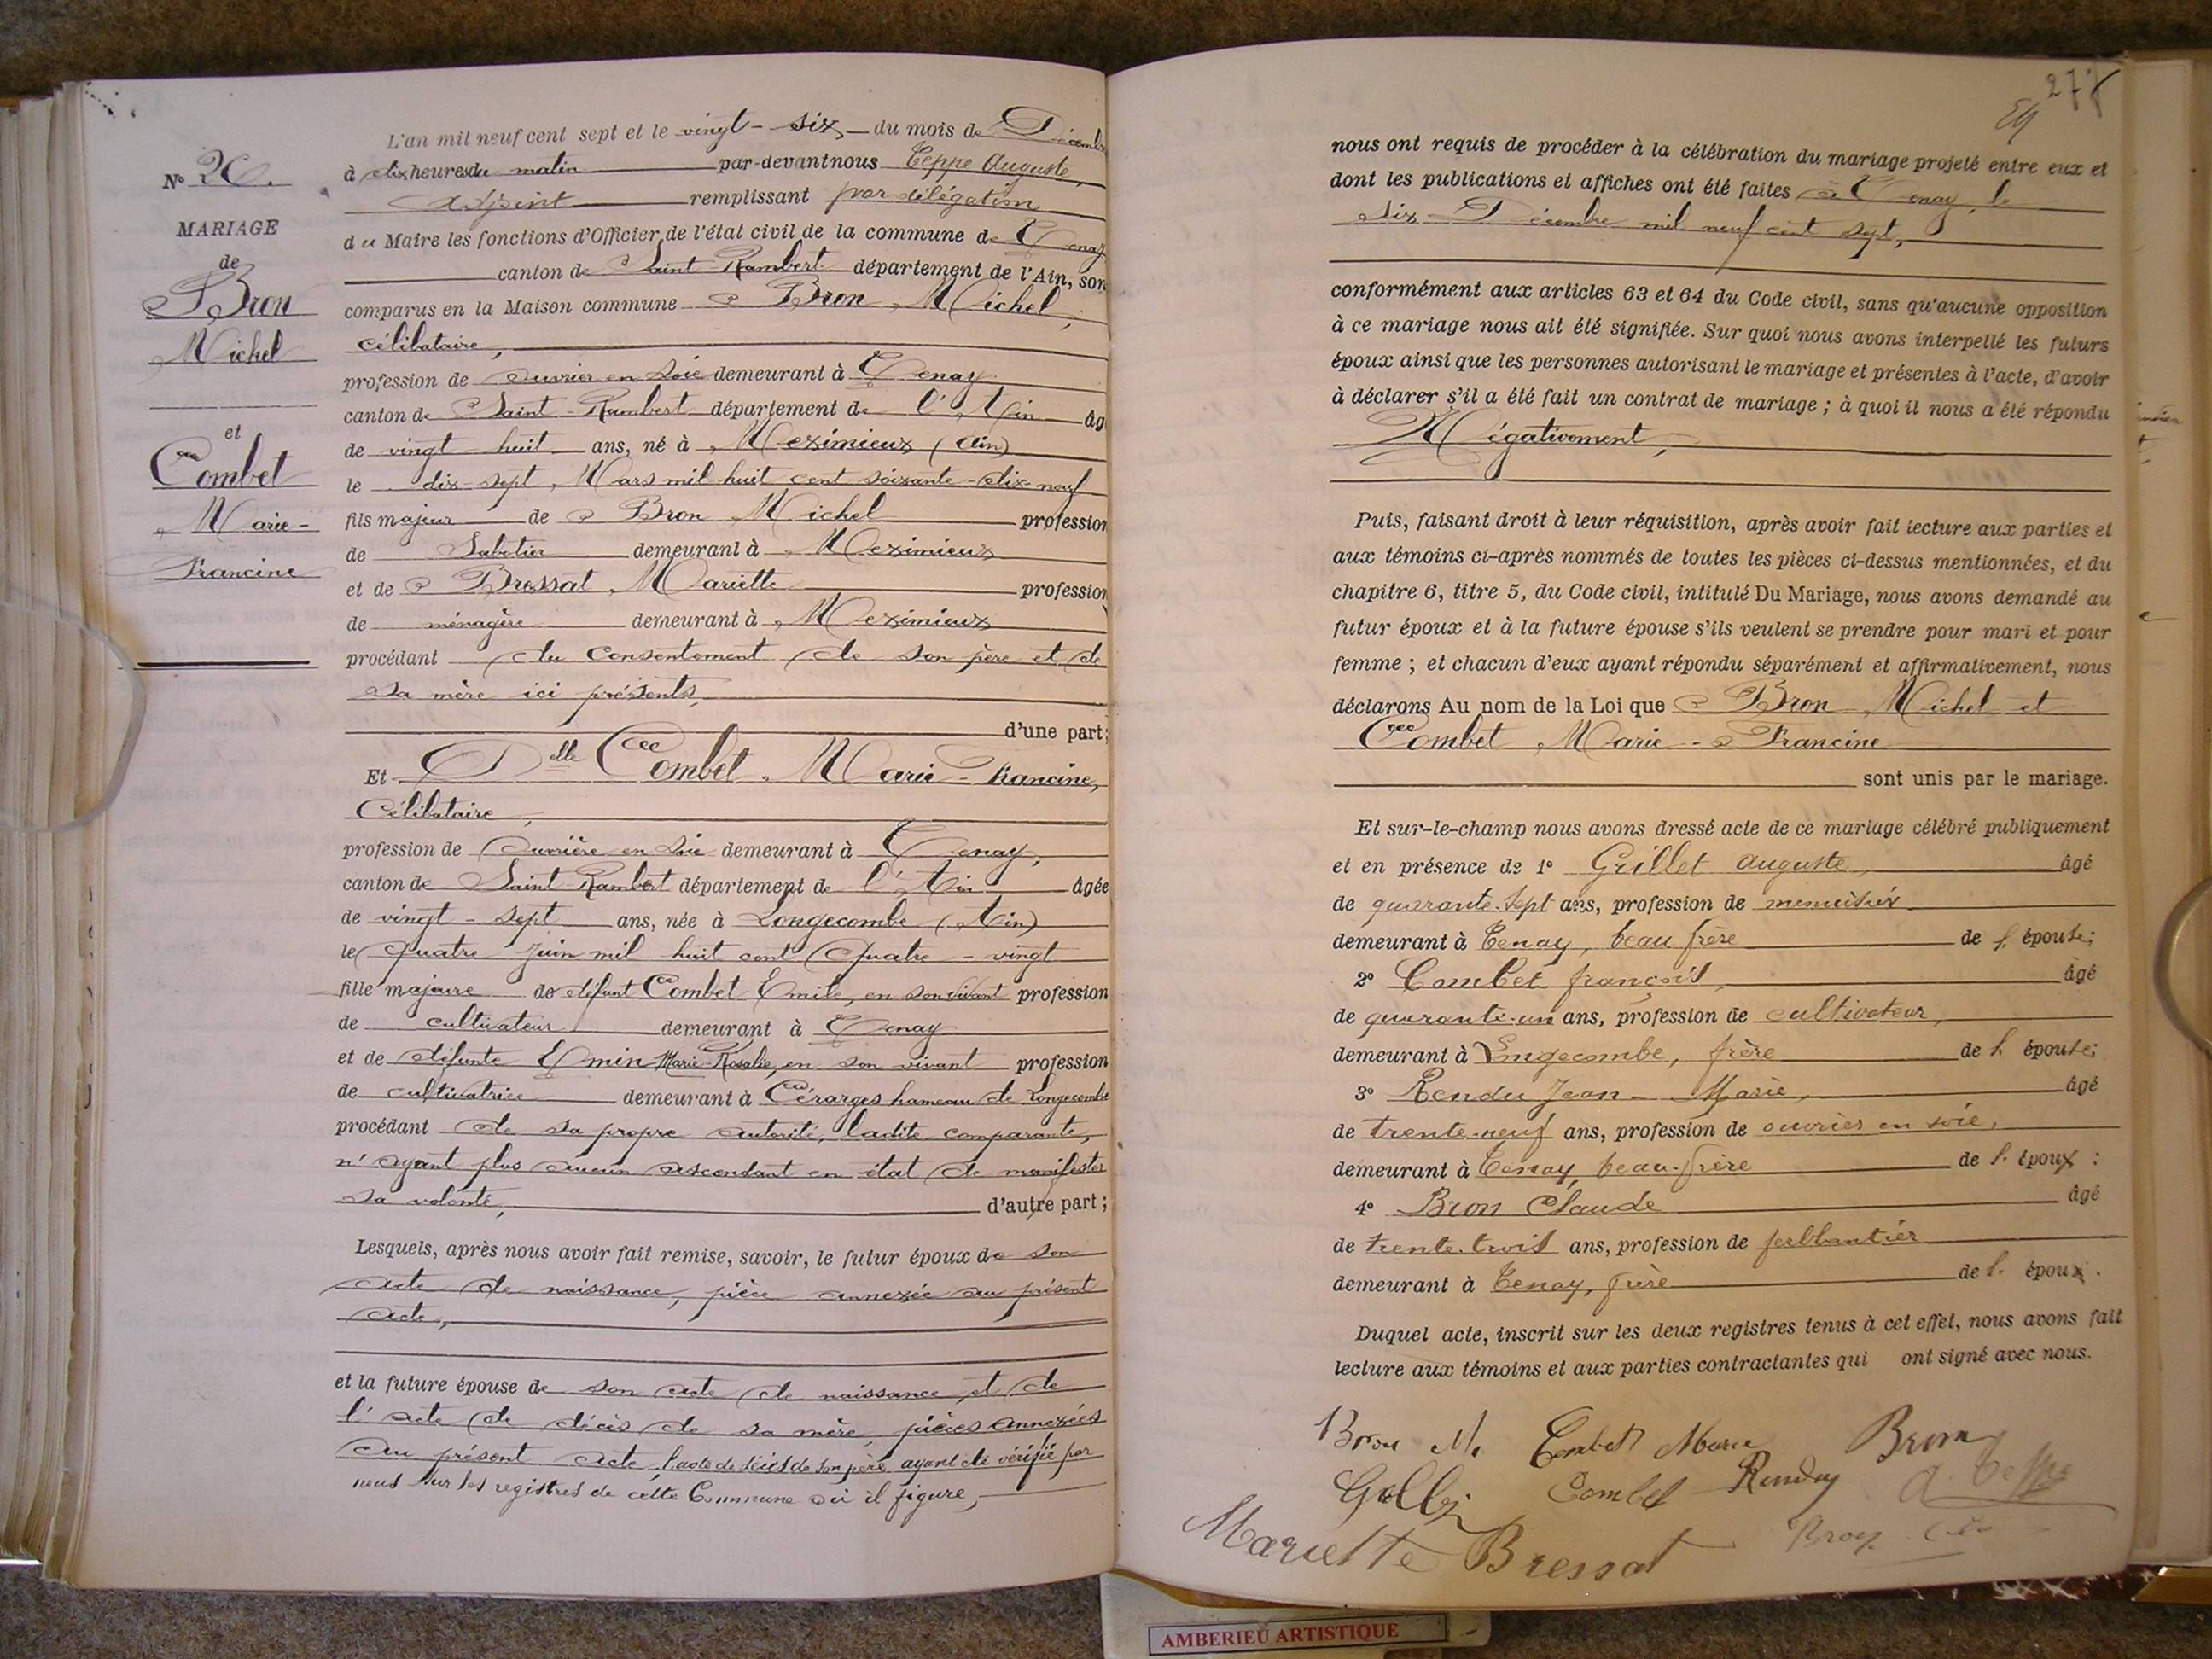 N° 20.
MARIAGE
de
Bron
Michel
et
Combet
Marie-
Francine
L'an mil neuf cent sept et le vingt-six du mois de Décembre
à dix heures du matin par-devant nous Teppe Auguste,
adjoint remplissant par délégation
du Maire les fonctions d'Officier de l'état civil de la commune de Tenay
canton de Saint-Rambert département de l'Ain, son
comparus en la Maison commune Bron Michel,
célibataire,
profession de ouvrier en soie demeurant à Tenay
canton de Saint-Rambert département de l'Ain âg
de vingt-huit ans, né à Meximieux (Ain)
le dix-sept Mars mil huit cent soixante-dix-neuf
fils majeur de Bron Michel profession
de Sabotier demeurant à Meximieux
et de Bressat Mariette profession
de ménagère demeurant à Meximieux
procédant du consentement de son père et de
sa mère ici présents,
d'une part;
Et Delle Combet Marie-Francine,
Célibataire,
profession de Ouvrière en soie demeurant à Tenay,
canton de Saint-Rambert département de l'Ain âgée
de vingt-sept ans, née à Longecombe (Ain)
le quatre Juin mil huit cent quatre-vingt
fille majeure de défunt Combet Emile, en son vivant profession
de cultivateur demeurant à Tenay
et de défunte Emin Marie-Rosalie, en son vivant profession
de cultivatrice demeurant à Cérarges hameau de Longecombe
procédant de sa propre autorité, ladite comparante,
n'ayant plus aucun ascendant en état de manifester
sa volonté, d'autre part;
Lesquels, après nous avoir fait remise, savoir, le futur époux de son
acte de naissance, pièce annexée au présent
acte,
et la future épouse de son acte de naissance et de
l'acte de décès de sa mère, pièces annexées
au présent acte, l'acte de décès de son père ayant été vérifié par
nous sur les registres de cette Commune où il figure,
277
nous ont requis de procéder à la célébration du mariage projeté entre eux et
dont les publications et affiches ont été faites à Tenay, le
six Décembre mil neuf cent sept,
conformément aux articles 63 et 64 du Code civil, sans qu'aucune opposition
à ce mariage nous ait été signifiée. Sur quoi nous avons interpellé les futurs
époux ainsi que les personnes autorisant le mariage et présentes à l'acte, d'avoir
à déclarer s'il a été fait un contrat de mariage; à quoi il nous a été répondu
Négativement,
Puis, faisant droit à leur réquisition, après avoir fait lecture aux parties et
aux témoins ci-après nommés de toutes les pièces ci-dessus mentionnées, et du
chapitre 6, titre 5, du Code civil, intitulé Du Mariage, nous avons demandé au
futur époux et à la future épouse s'ils veulent se prendre pour mari et pour
femme; et chacun d'eux ayant répondu séparément et affirmativement, nous
déclarons Au nom de la Loi que Bron Michel et
Combet Marie-Francine
sont unis par le mariage.
Et sur-le-champ nous avons dressé acte de ce mariage célébré publiquement
et en présence de 1° Grillet Auguste, âgé
de quarante-sept ans, profession de menuisier
demeurant à Tenay, beau frère de l'épouse;
2° Combet françois, âgé
de quarante-un ans, profession de cultivateur,
demeurant à Longecombe, frère de l'épouse;
3° Rendu Jean-Marie, âgé
de trente-neuf ans, profession de ouvrier en soie,
demeurant à Tenay, beau-frère de l'époux:
4° Bron Claude âgé
de trente-trois ans, profession de ferblantier
demeurant à Tenay, frère de l'époux.
Duquel acte, inscrit sur les deux registres tenus à cet effet, nous avons fait
lecture aux témoins et aux parties contractantes qui ont signé avec nous.
Bron M. Combet Marie Bron
Combet Rendu A. Teppe
Mariette Bressat Bron
AMBERIEU ARTISTIQUE